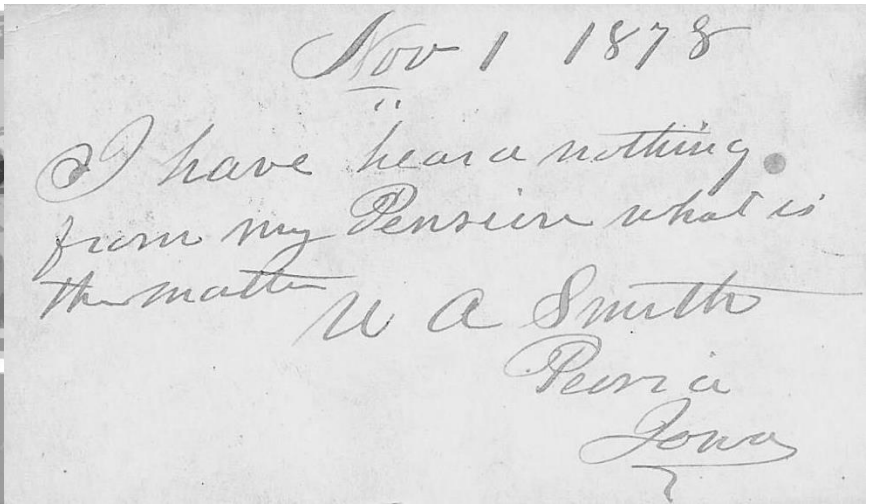 Nov 1 1878
"
I have heard nothing
from my Pension what is
the matter
W A Smith
Peoria
Iowa